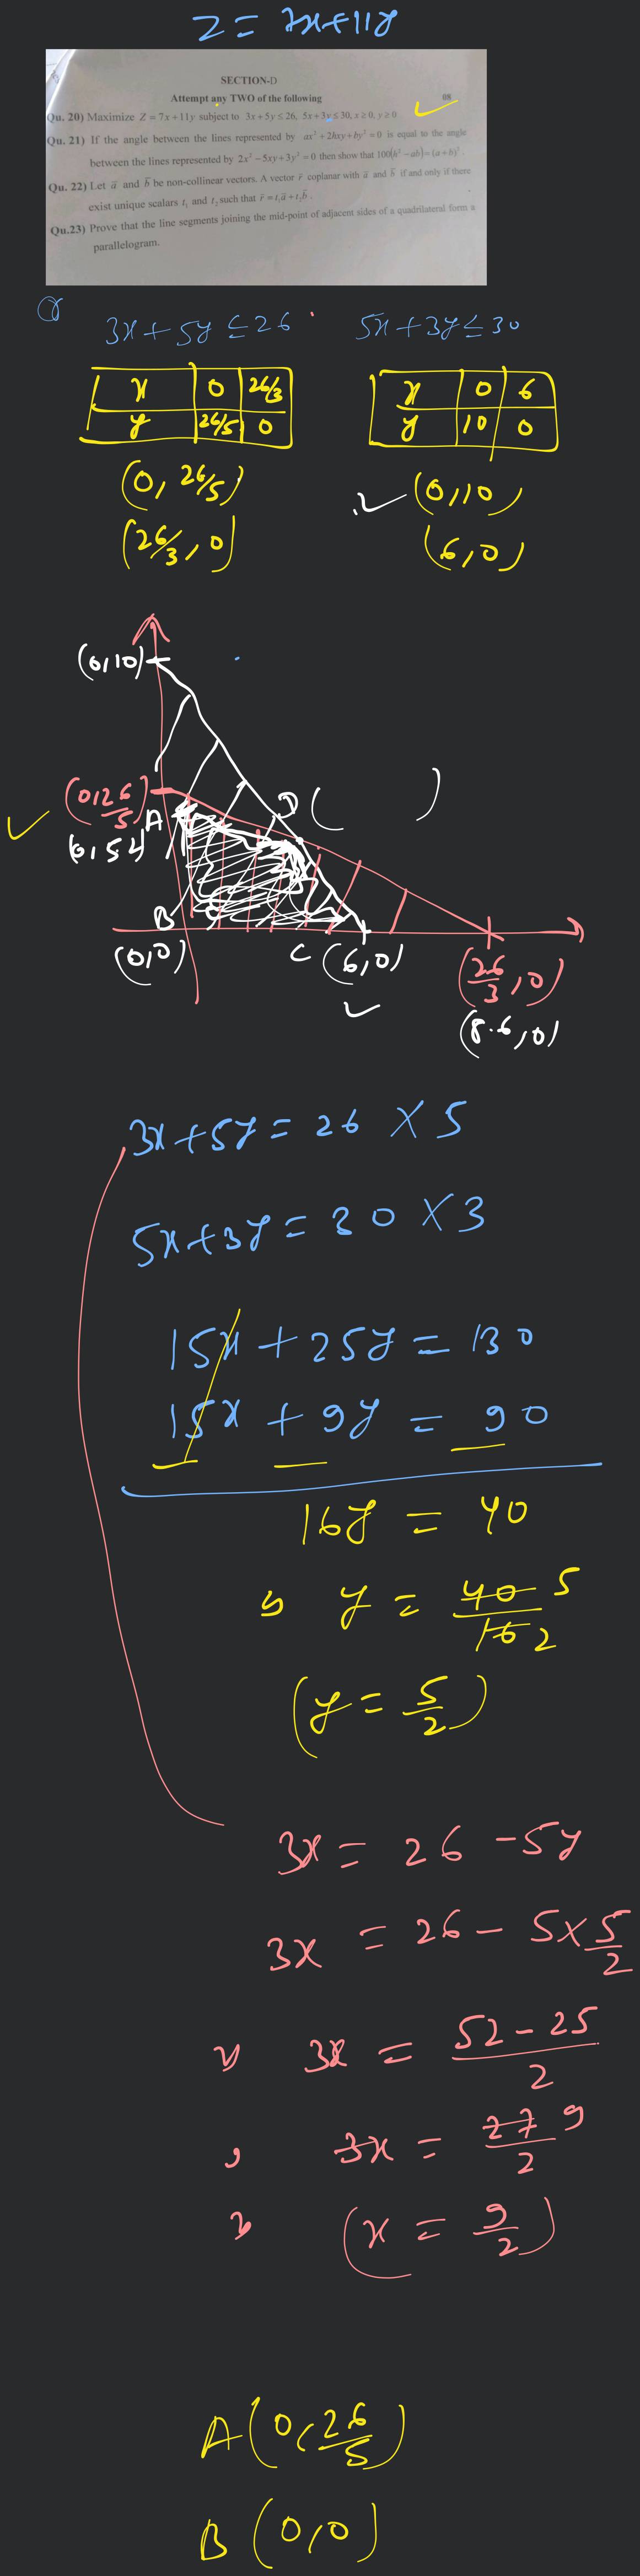 Z = 7x+11y
SECTION-D
Attempt any TWO of the following
08
Qu. 20) Maximize Z = 7x+11y subject to 3x+5y ≤ 26, 5x+3y ≤ 30, x ≥ 0, y ≥ 0
Qu. 21) If the angle between the lines represented by ax²+2hxy+by²=0 is equal to the angle
between the lines represented by 2x²-5xy+3y²=0 then show that 100(h²-ab)=(a+b)².
Qu. 22) Let a̅ and b̅ be non-collinear vectors. A vector r̅ coplanar with a̅ and b̅ if and only if there
exist unique scalars t₁ and t₂ such that r̅ = t₁a̅ + t₂b̅.
Qu.23) Prove that the line segments joining the mid-point of adjacent sides of a quadrilateral form a
parallelogram.
3x+5y ≤ 26 5x+3y ≤ 30
x 0 26/3
y 26/5 0
x 0 6
y 10 0
(0, 26/5)
(26/3, 0)
(0,10)
(6,0)
(0,10)
(0,26/5)
A
(0,5.2)
D ( )
B
(0,0)
C (6,0)
(26/3, 0)
(8.6,0)
3x+5y = 26 × 5
5x+3y = 30 × 3
15x + 25y = 130
15x + 9y = 90
16y = 40
y = 40/16 5/2
(y = 5/2)
3x = 26 - 5y
3x = 26 - 5×5/2
3x = 52-25/2
3x = 27/2 9
(x = 9/2)
A(0, 26/5)
B (0,0)